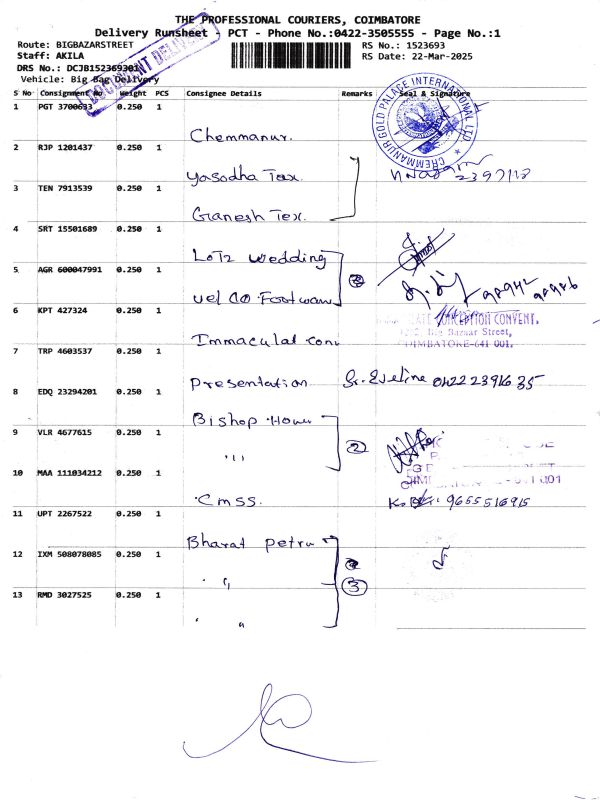 THE PROFESSIONAL COURIERS, COIMBATORE
Delivery Runsheet - PCT - Phone No.:0422-3505555 - Page No.:1
Route: BIGBAZARSTREET
RS No.: 1523693
Staff: AKILA
RS Date: 22-Mar-2025
DRS No.: DCJB152369301
Vehicle: Big Bag Delivery
DOCUMENT DELIVERY
S No Consignment No Weight PCS Consignee Details Remarks Seal & Signature
1 PGT 3700693 0.250 1 Chemmanur.
CHEMMANUR GOLD PALACE INTERNATIONAL LTD
2 RJP 1201437 0.250 1 Yasodha Tex.
2397118
3 TEN 7913539 0.250 1 Ganesh Tex.
4 SRT 15501689 0.250 1 LoT2 wedding
5 AGR 600047991 0.250 1 Footwear
98942
6 KPT 427324 0.250 1 Immaculat con
CONCEPTION CONVENT,
Big Bazaar Street,
OIMBATORE-641 001.
7 TRP 4603537 0.250 1 Presentation Sr. Eveline 0422 2391635
8 EDQ 23294201 0.250 1 Bishop House
9 VLR 4677615 0.250 1 " 2
10 MAA 111034212 0.250 1 CMSS. 9655516915
11 UPT 2267522 0.250 1 Bharat petru
12 IXM 508078085 0.250 1 " 3
13 RMD 3027525 0.250 1 "